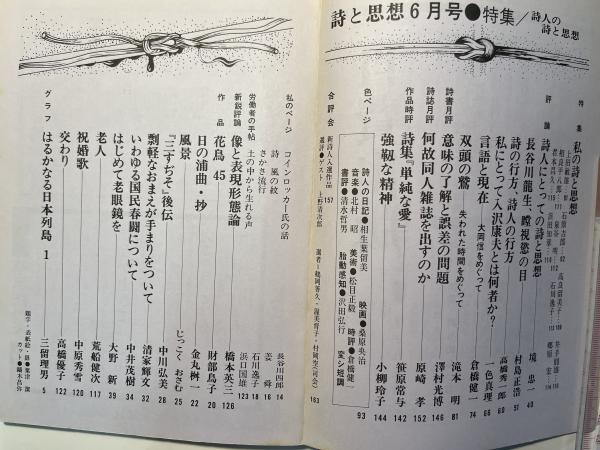 詩と思想6月号●特集/詩人の詩と思想
特集 私の詩と思想
評論 詩人にとっての詩と思想 境 忠一 40
長谷川龍生、瞠視慾の日 村島正浩 51
詩の行方、詩人の行方 高橋秀一郎 60
私にとって入沢康夫とは何者か? 一色真理 66
言語と現在 大岡信をめぐって 倉橋健一 74
双頭の鷲 失われた時間をめぐって 滝本 明 81
詩書月評 意味の了解と誤差の問題 澤村光博 146
詩誌月評 何故同人雑誌を出すのか 原崎 孝 152
作品時評 詩集『単純な愛』 笹原常与 142
強靱な精神 小柳玲子 144
色ページ
詩人の日記●相生葉留美 映画●桑原央治
音楽●北村 昭 美術●松目正毅 時評●倉橋健一
書評●清水哲男 胎動感知●沢田弘行 変シ短調 93
合評会 新詩人入選作品 157
選評●ゲスト 上野菊次郎
選者=鶴岡善久・渥美育子・村岡空(司会) 163
私のページ コインロッカー氏の話 長谷川四郎 14
詩 風の紋 姜 舜 16
さかさ流行 石川逸子 18
労働者の手帖 土の中から生れる声 浜口国雄 123
新鋭評論 像と表現形態論 橋本英三 126
作品 花鳥 45 財部鳥子 20
日の浦曲・抄 金丸桝一 22
風景 じっこく おさむ 25
『三すぢそ』後伝 中川弘美 28
剽軽なおまえが手まりをついて 清家輝文 32
いわゆる国民春闘について 中井茂樹 34
はじめて老眼鏡を 大野 新 39
老人 荒船健次 117
祝婚歌 中原秀雪 120
交わり 高橋優子 122
グラフ はるかなる日本列島 1 三留理男 5